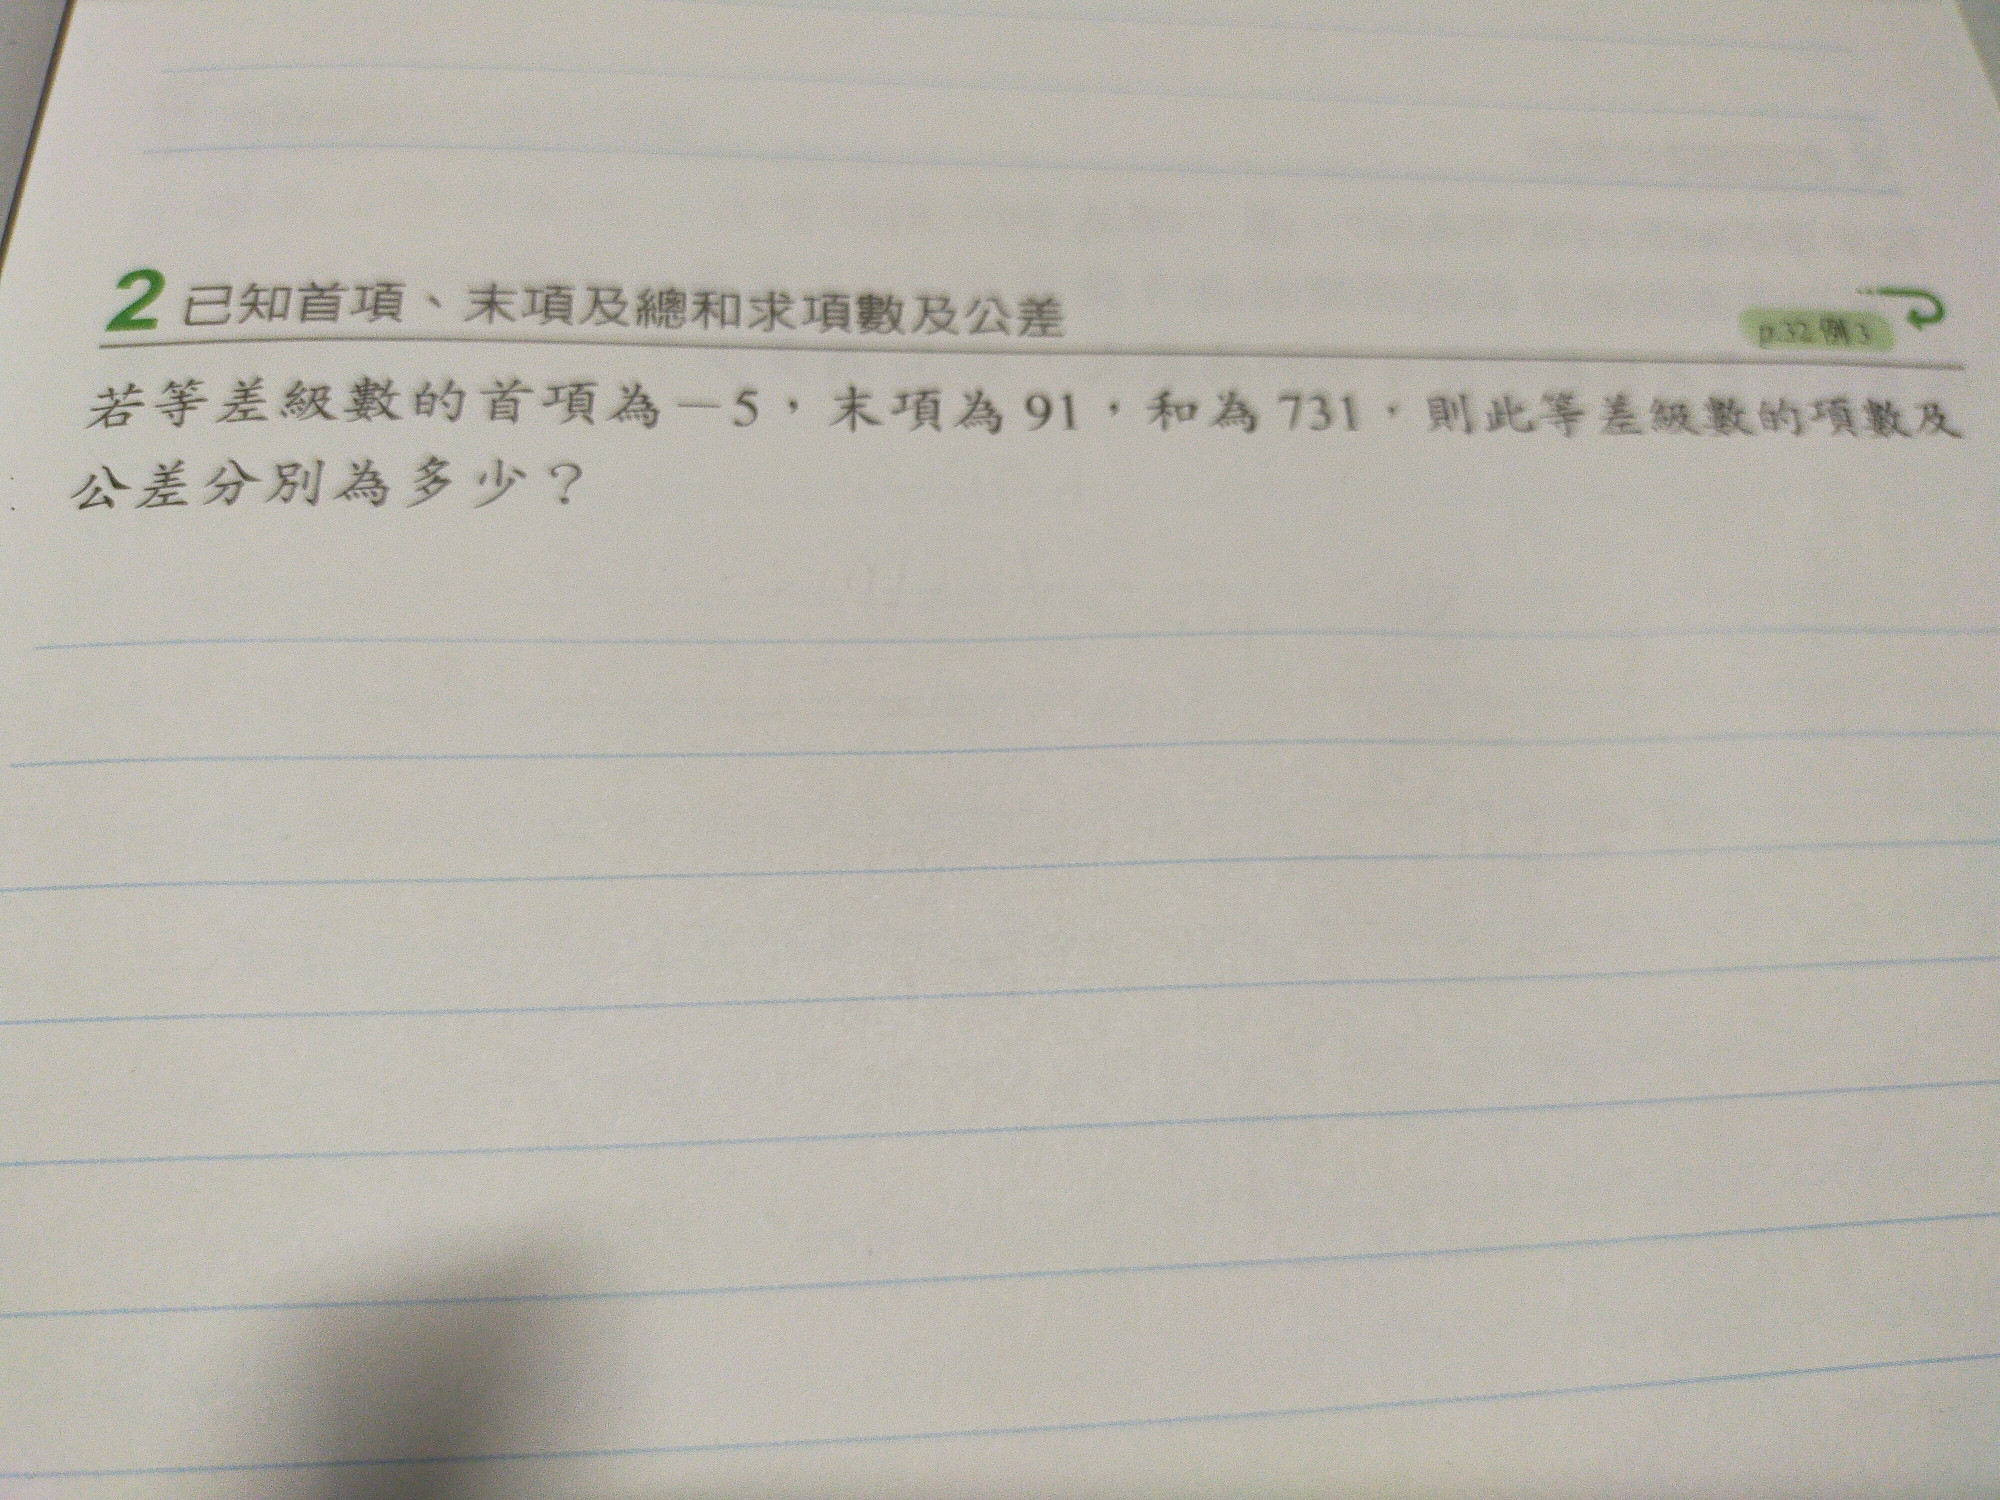 2 已知首項、末項及總和求項數及公差
p.32 例3
若等差級數的首項為－5，末項為 91，和為 731，則此等差級數的項數及
公差分別為多少？